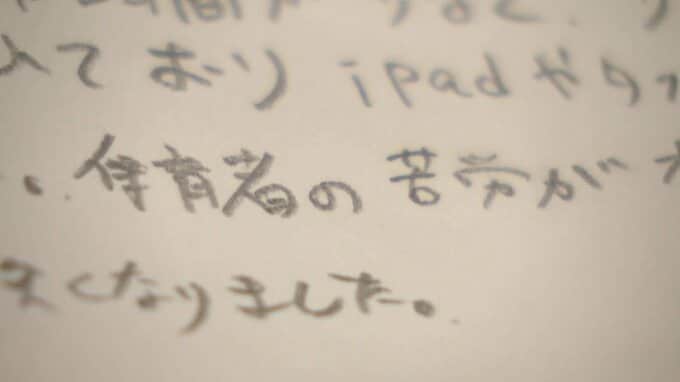 入ており ipadやタ
、保育者の苦労が
くなりました。